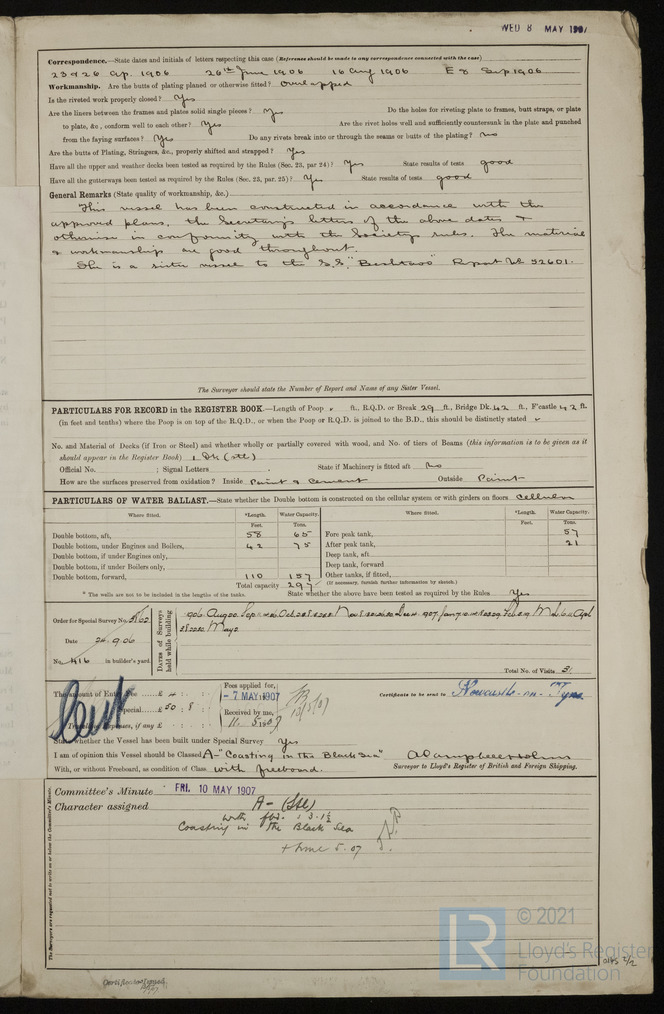 WED 8 MAY 1907
Correspondence.—State dates and initials of letters respecting this case (Reference should be made to any correspondence connected with the case)
23 & 26 Ap. 1906 26th June 1906 16 Aug 1906 E 8 Sep 1906
Workmanship. Are the butts of plating planed or otherwise fitted? Overlapped
Is the riveted work properly closed? Yes
Are the liners between the frames and plates solid single pieces? Yes Do the holes for riveting plate to frames, butt straps, or plate
to plate, &c., conform well to each other? Yes Are the rivet holes well and sufficiently countersunk in the plate and punched
from the faying surfaces? Yes Do any rivets break into or through the seams or butts of the plating? No
Are the butts of Plating, Stringers, &c., properly shifted and strapped? Yes
Have all the upper and weather decks been tested as required by the Rules (Sec. 23, par 24)? Yes State results of tests good
Have all the gutterways been tested as required by the Rules (Sec. 23, par. 25)? Yes State results of tests good
General Remarks (State quality of workmanship, &c.)
This vessel has been constructed in accordance with the
approved plans, the Secretary's letters of the above dates &
otherwise in conformity with the Society's rules. The material
& workmanship are good throughout.
She is a sister vessel to the S.S. "Beshtaos" Report No 52601.
The Surveyor should state the Number of Report and Name of any Sister Vessel.
PARTICULARS FOR RECORD in the REGISTER BOOK.—Length of Poop ft., R.Q.D. or Break 29 ft., Bridge Dk. 42 ft., F'castle 42 ft.
(in feet and tenths) where the Poop is on top of the R.Q.D., or when the Poop or R.Q.D. is joined to the B.D., this should be distinctly stated
No. and Material of Decks (if Iron or Steel) and whether wholly or partially covered with wood, and No. of tiers of Beams (this information is to be given as it
should appear in the Register Book) 1 Dk (stl)
Official No. ; Signal Letters State if Machinery is fitted aft No
How are the surfaces preserved from oxidation? Inside Paint & Cement Outside Paint
PARTICULARS OF WATER BALLAST.—State whether the Double bottom is constructed on the cellular system or with girders on floors Cellular
Where fitted. *Length. Water Capacity. Where fitted. *Length. Water Capacity.
Feet. Tons. Feet. Tons.
Double bottom, aft, 58 65 Fore peak tank, 57
Double bottom, under Engines and Boilers, 42 75 After peak tank, 21
Double bottom, if under Engines only, Deep tank, aft
Double bottom, if under Boilers only, Deep tank, forward
Double bottom, forward, 110 157 Other tanks, if fitted,
Total capacity 297 (If necessary, furnish further information by sketch.)
* The wells are not to be included in the lengths of the tanks. State whether the above have been tested as required by the Rules Yes
Order for Special Survey No.
Date 24.9.06
No. 416 in builder's yard.
DATES of Surveys held while building
Total No. of Visits
The amount of Entry Fee £ 4 : :
Special £ 50 : 8 :
Travelling Expenses, if any £ : :
Fees applied for,
- 7 MAY 1907
Received by me,
11. 5. 1907
Certificate to be sent to Newcastle-on-Tyne
State whether the Vessel has been built under Special Survey Yes
I am of opinion this Vessel should be Classed A- "Coasting in the Black Sea"
With, or without Freeboard, as condition of Class with freeboard.
Surveyor to Lloyd's Register of British and Foreign Shipping.
Committee's Minute FRI. 10 MAY 1907
Character assigned A- (Stl)
with fbd. 1.3.1½
Coasting in the Black Sea
+ LMC 5.07
The Surveyors are requested not to write on or below the Committee's Minute.
LR
© 2021
Lloyd's Register
Foundation
0185 2/2